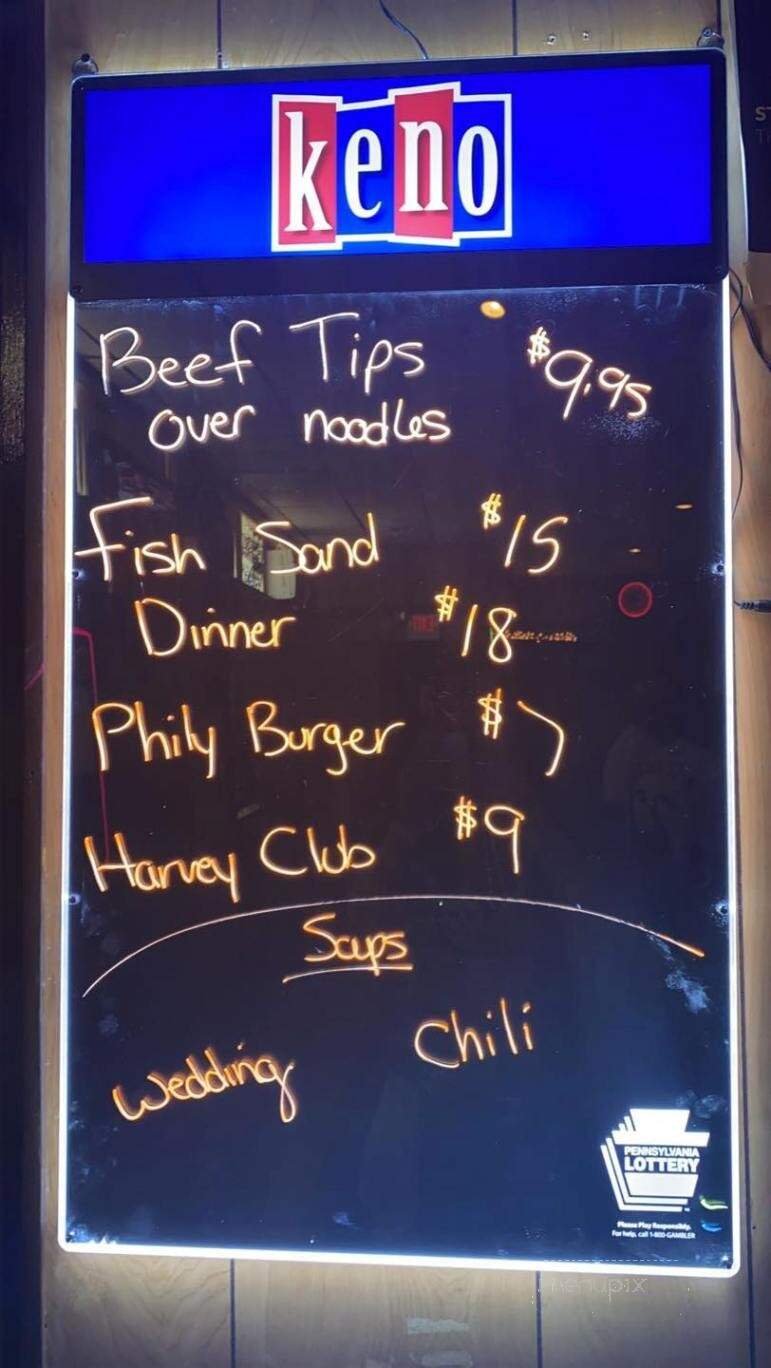 keno
Beef Tips $9.95
over noodles
Fish Sand $15
Dinner $18
Phily Burger $7
Harvey Club $9
Soups
Wedding Chili
PENNSYLVANIA
LOTTERY
Please Play Responsibly.
For help, call 1-800-GAMBLER
menupix